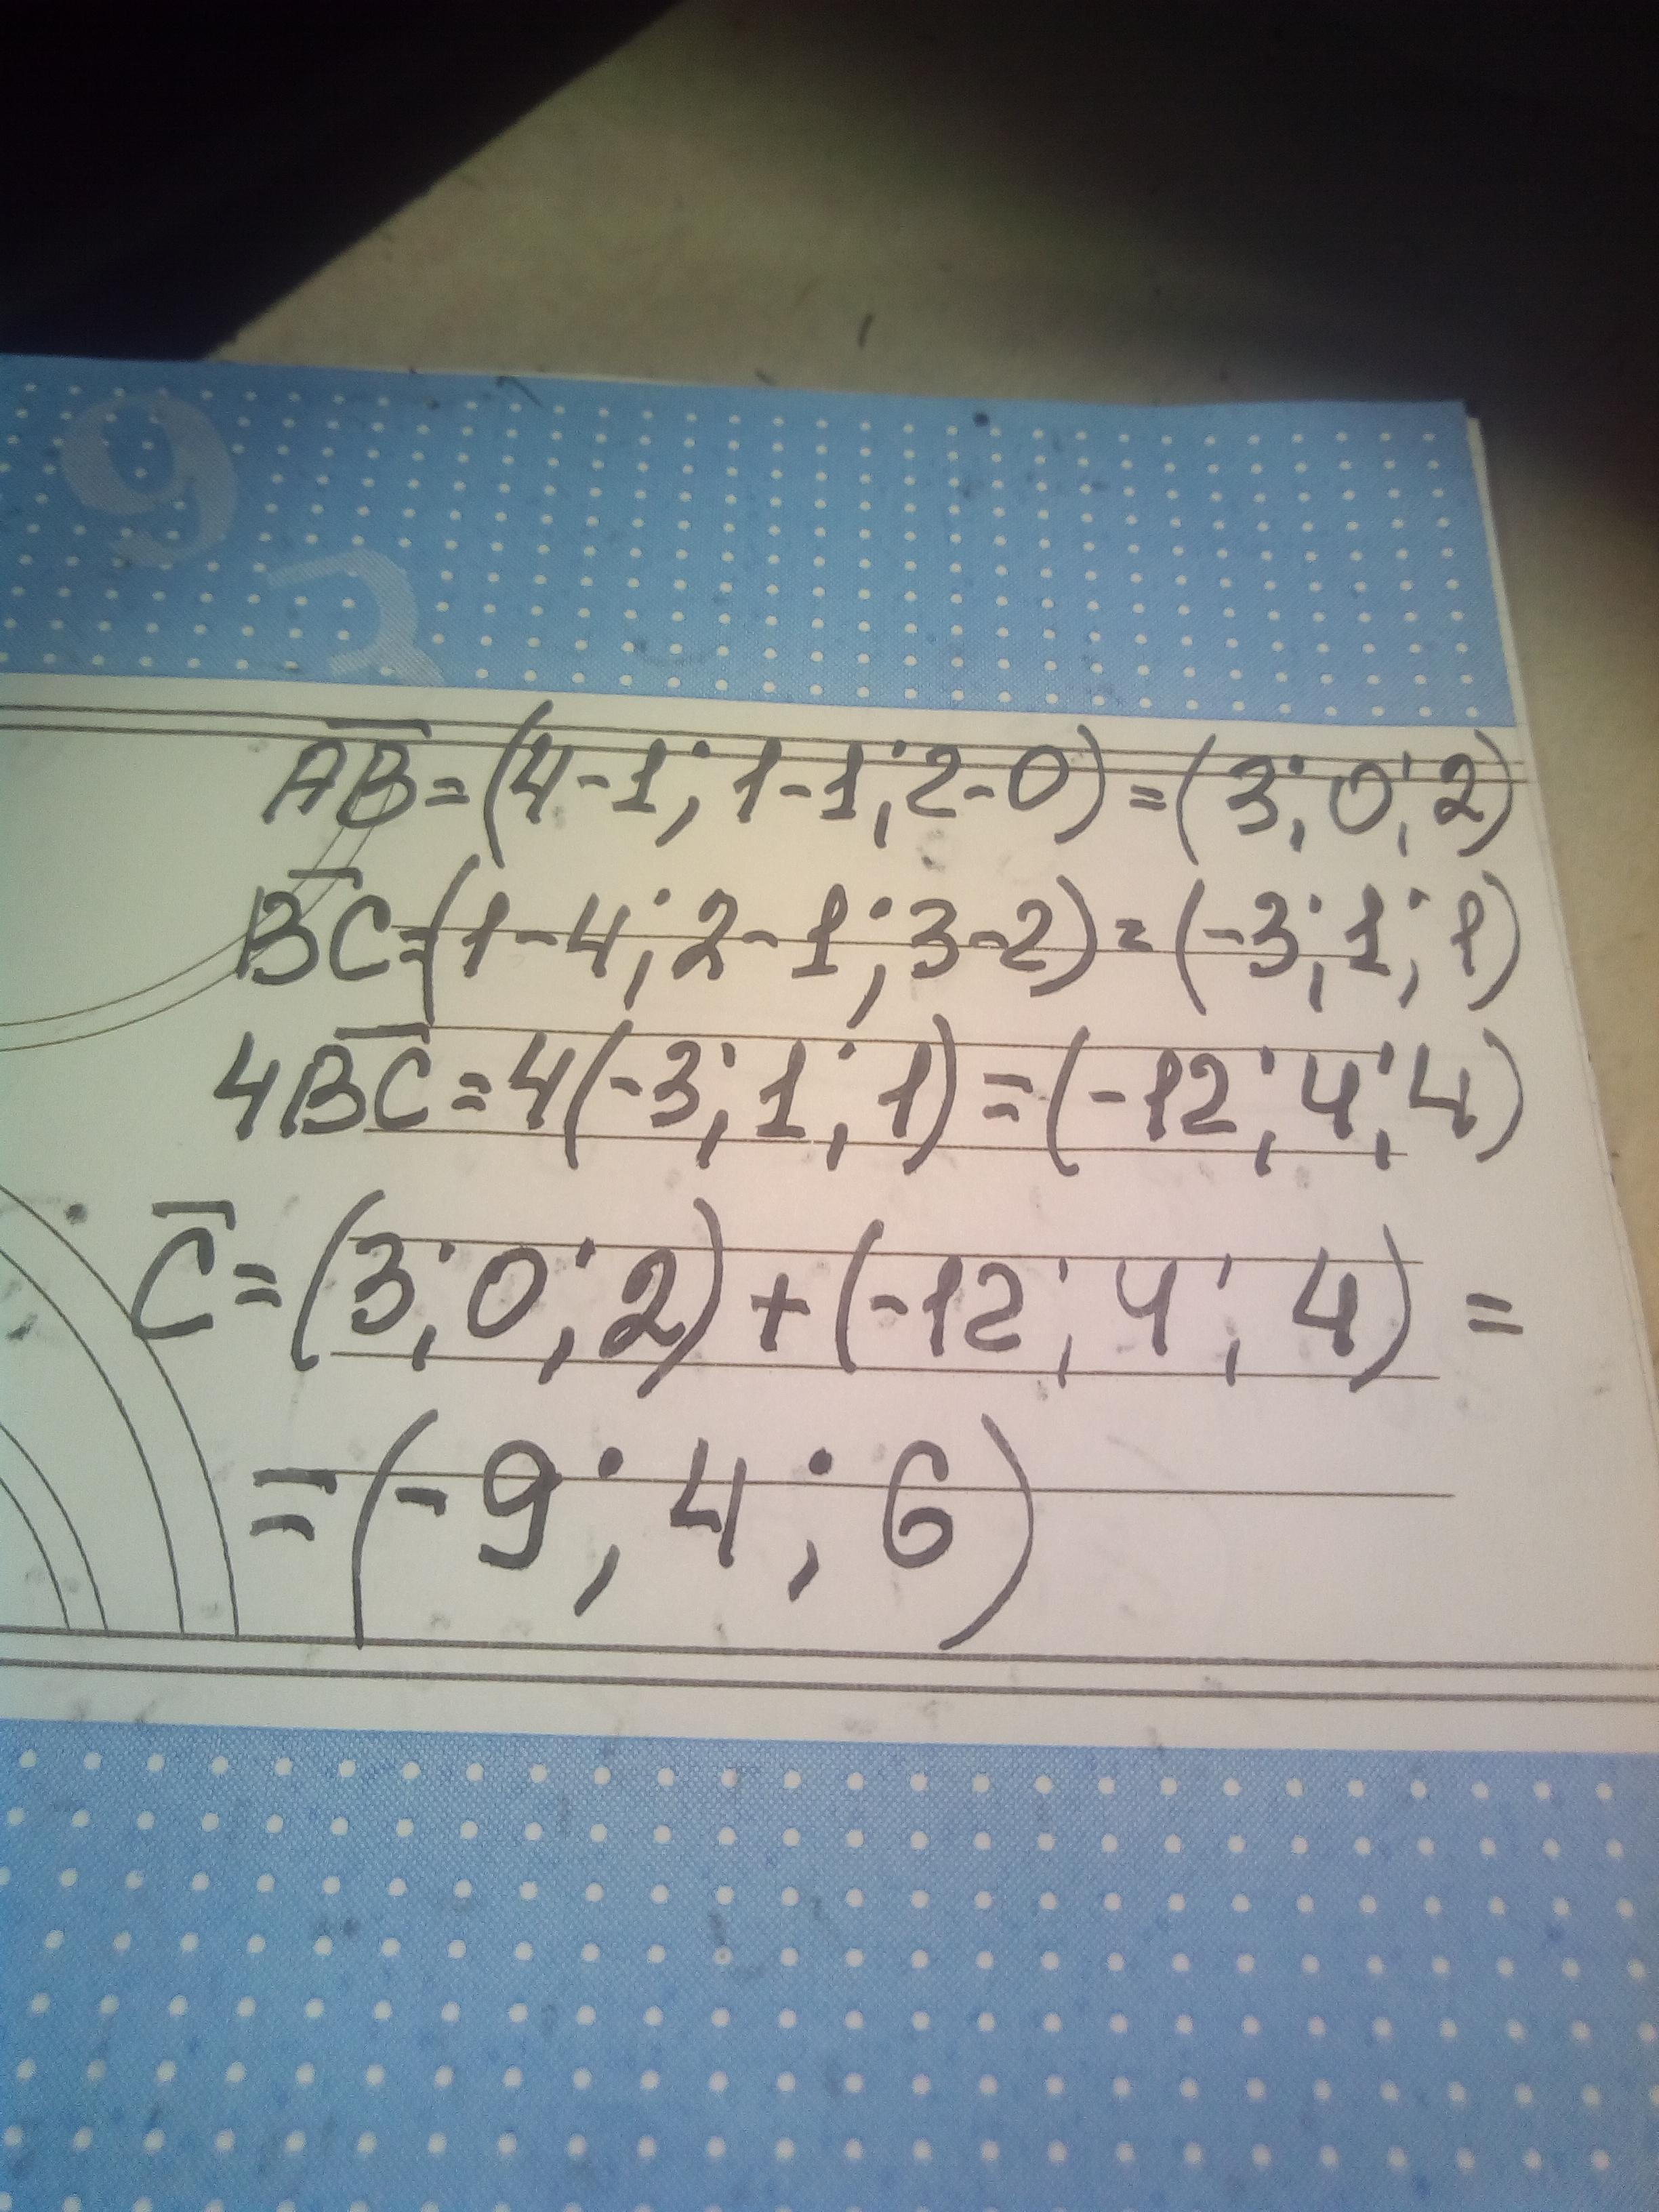 9
3
A̅B̅=(4-1; 1-1; 2-0)=(3; 0; 2)
B̅C̅=(1-4; 2-1; 3-2)=(-3; 1; 1)
4B̅C̅=4(-3; 1; 1)=(-12; 4; 4)
C̅=(3; 0; 2)+(-12; 4; 4)=
=(-9; 4; 6)